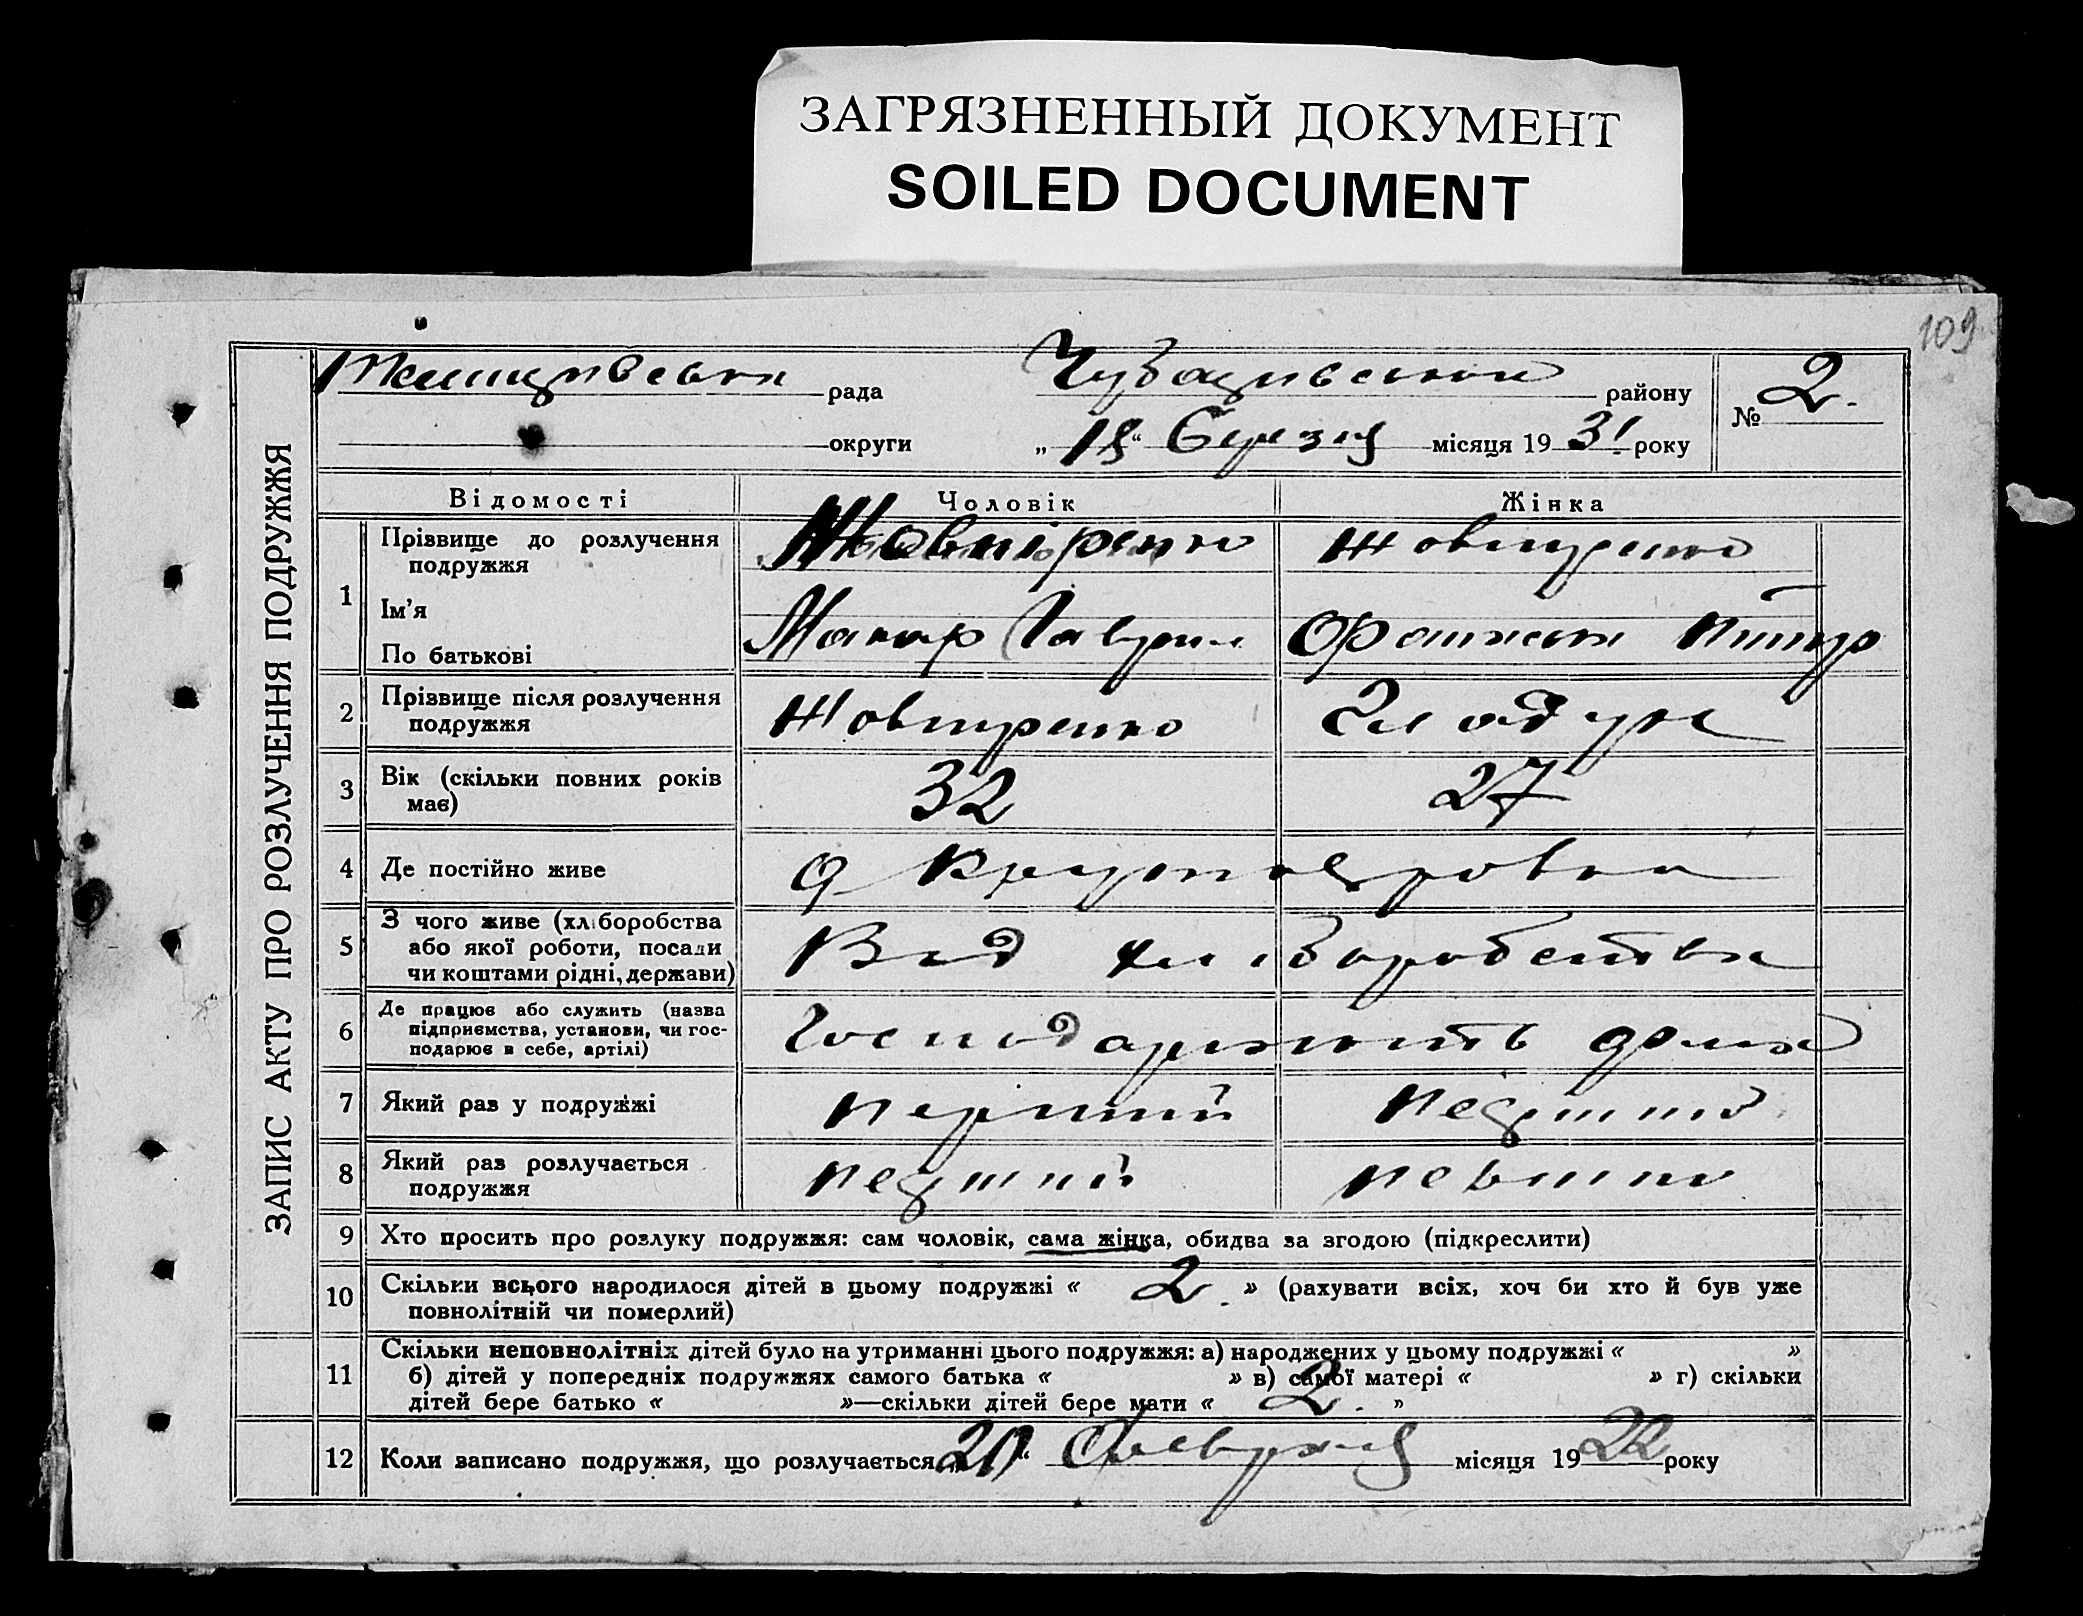 ЗАГРЯЗНЕННЫЙ ДОКУМЕНТ
SOILED DOCUMENT
109
ЗАПИС АКТУ ПРО РОЗЛУЧЕННЯ ПОДРУЖЖЯ
рада району № 2.
округи „ “ Березня місяця 1931 року
Відомості Чоловік Жінка
1 Прізвище до розлучення подружжя Жовніренко Жовніренко
Ім'я
По батькові Макар Гаврил
2 Прізвище після розлучення подружжя Жовніренко Гладун
3 Вік (скільки повних років має) 32 27
4 Де постійно живе
5 З чого живе (хліборобства або якої роботи, посади чи коштами рідні, держави) Від хліборобства
6 Де працює або служить (назва підприємства, установи, чи господарює в себе, артілі) дома
7 Який раз у подружжі перший первший
8 Який раз розлучається подружжя первший
9 Хто просить про розлуку подружжя: сам чоловік, сама жінка, обидва за згодою (підкреслити)
10 Скільки всього народилося дітей в цьому подружжі « 2. » (рахувати всіх, хоч би хто й був уже
повнолітній чи померлий)
11 Скільки неповнолітніх дітей було на утриманні цього подружжя: а) народжених у цьому подружжі « »
б) дітей у попередніх подружжях самого батька « » в) самої матері « » г) скільки
дітей бере батько « »—скільки дітей бере мати « 2. »
12 Коли записано подружжя, що розлучається „20“ місяця 1922 року